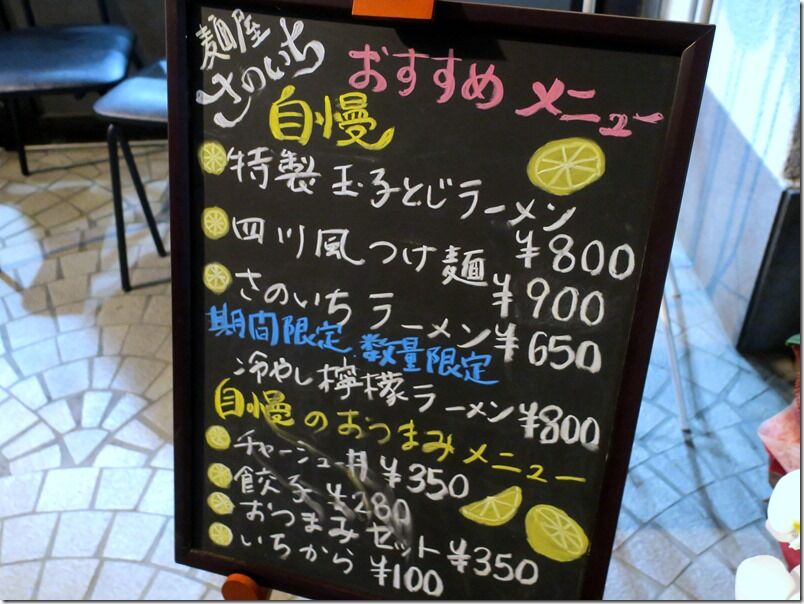 麺屋
さのいち
おすすめ メニュー
自慢
特製 玉子とじラーメン
¥800
四川風つけ麺
¥900
さのいちラーメン ¥650
期間限定、数量限定
冷やし檸檬ラーメン ¥800
自慢のおつまみメニュー
チャーシュー丼 ¥350
餃子 ¥280
おつまみセット ¥350
いちから ¥100